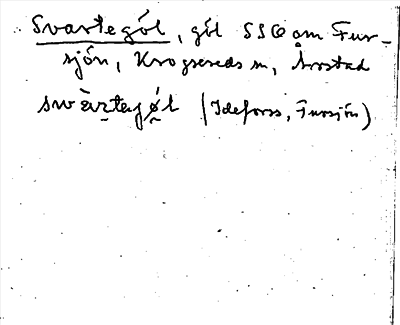 Svartegöl, göl SSO om Fur-
sjön, Krogsereds sn, Årstad
svàrtagø̀l (Idefors, Fursjön)